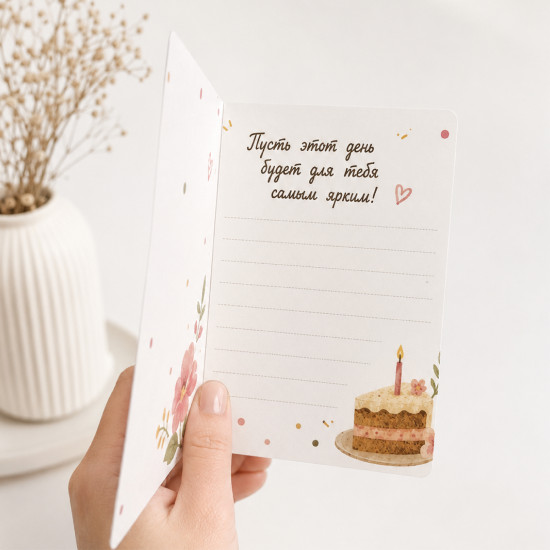 Пусть этот день
будет для тебя
самым ярким!